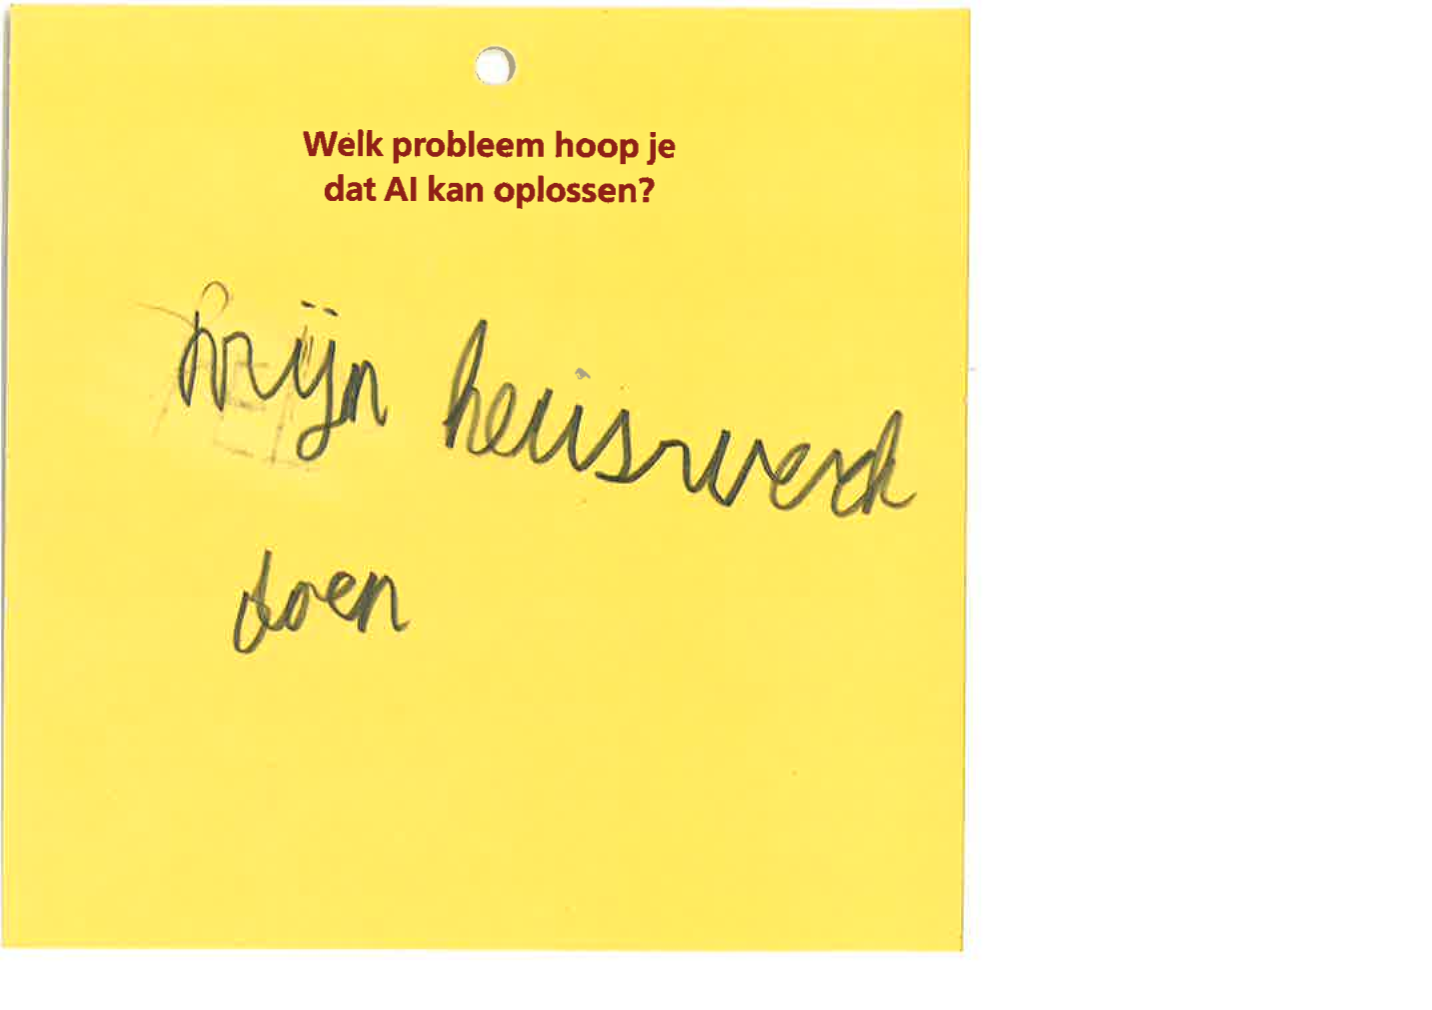 Welk probleem hoop je
dat AI kan oplossen?
mijn heuiswerk
doen